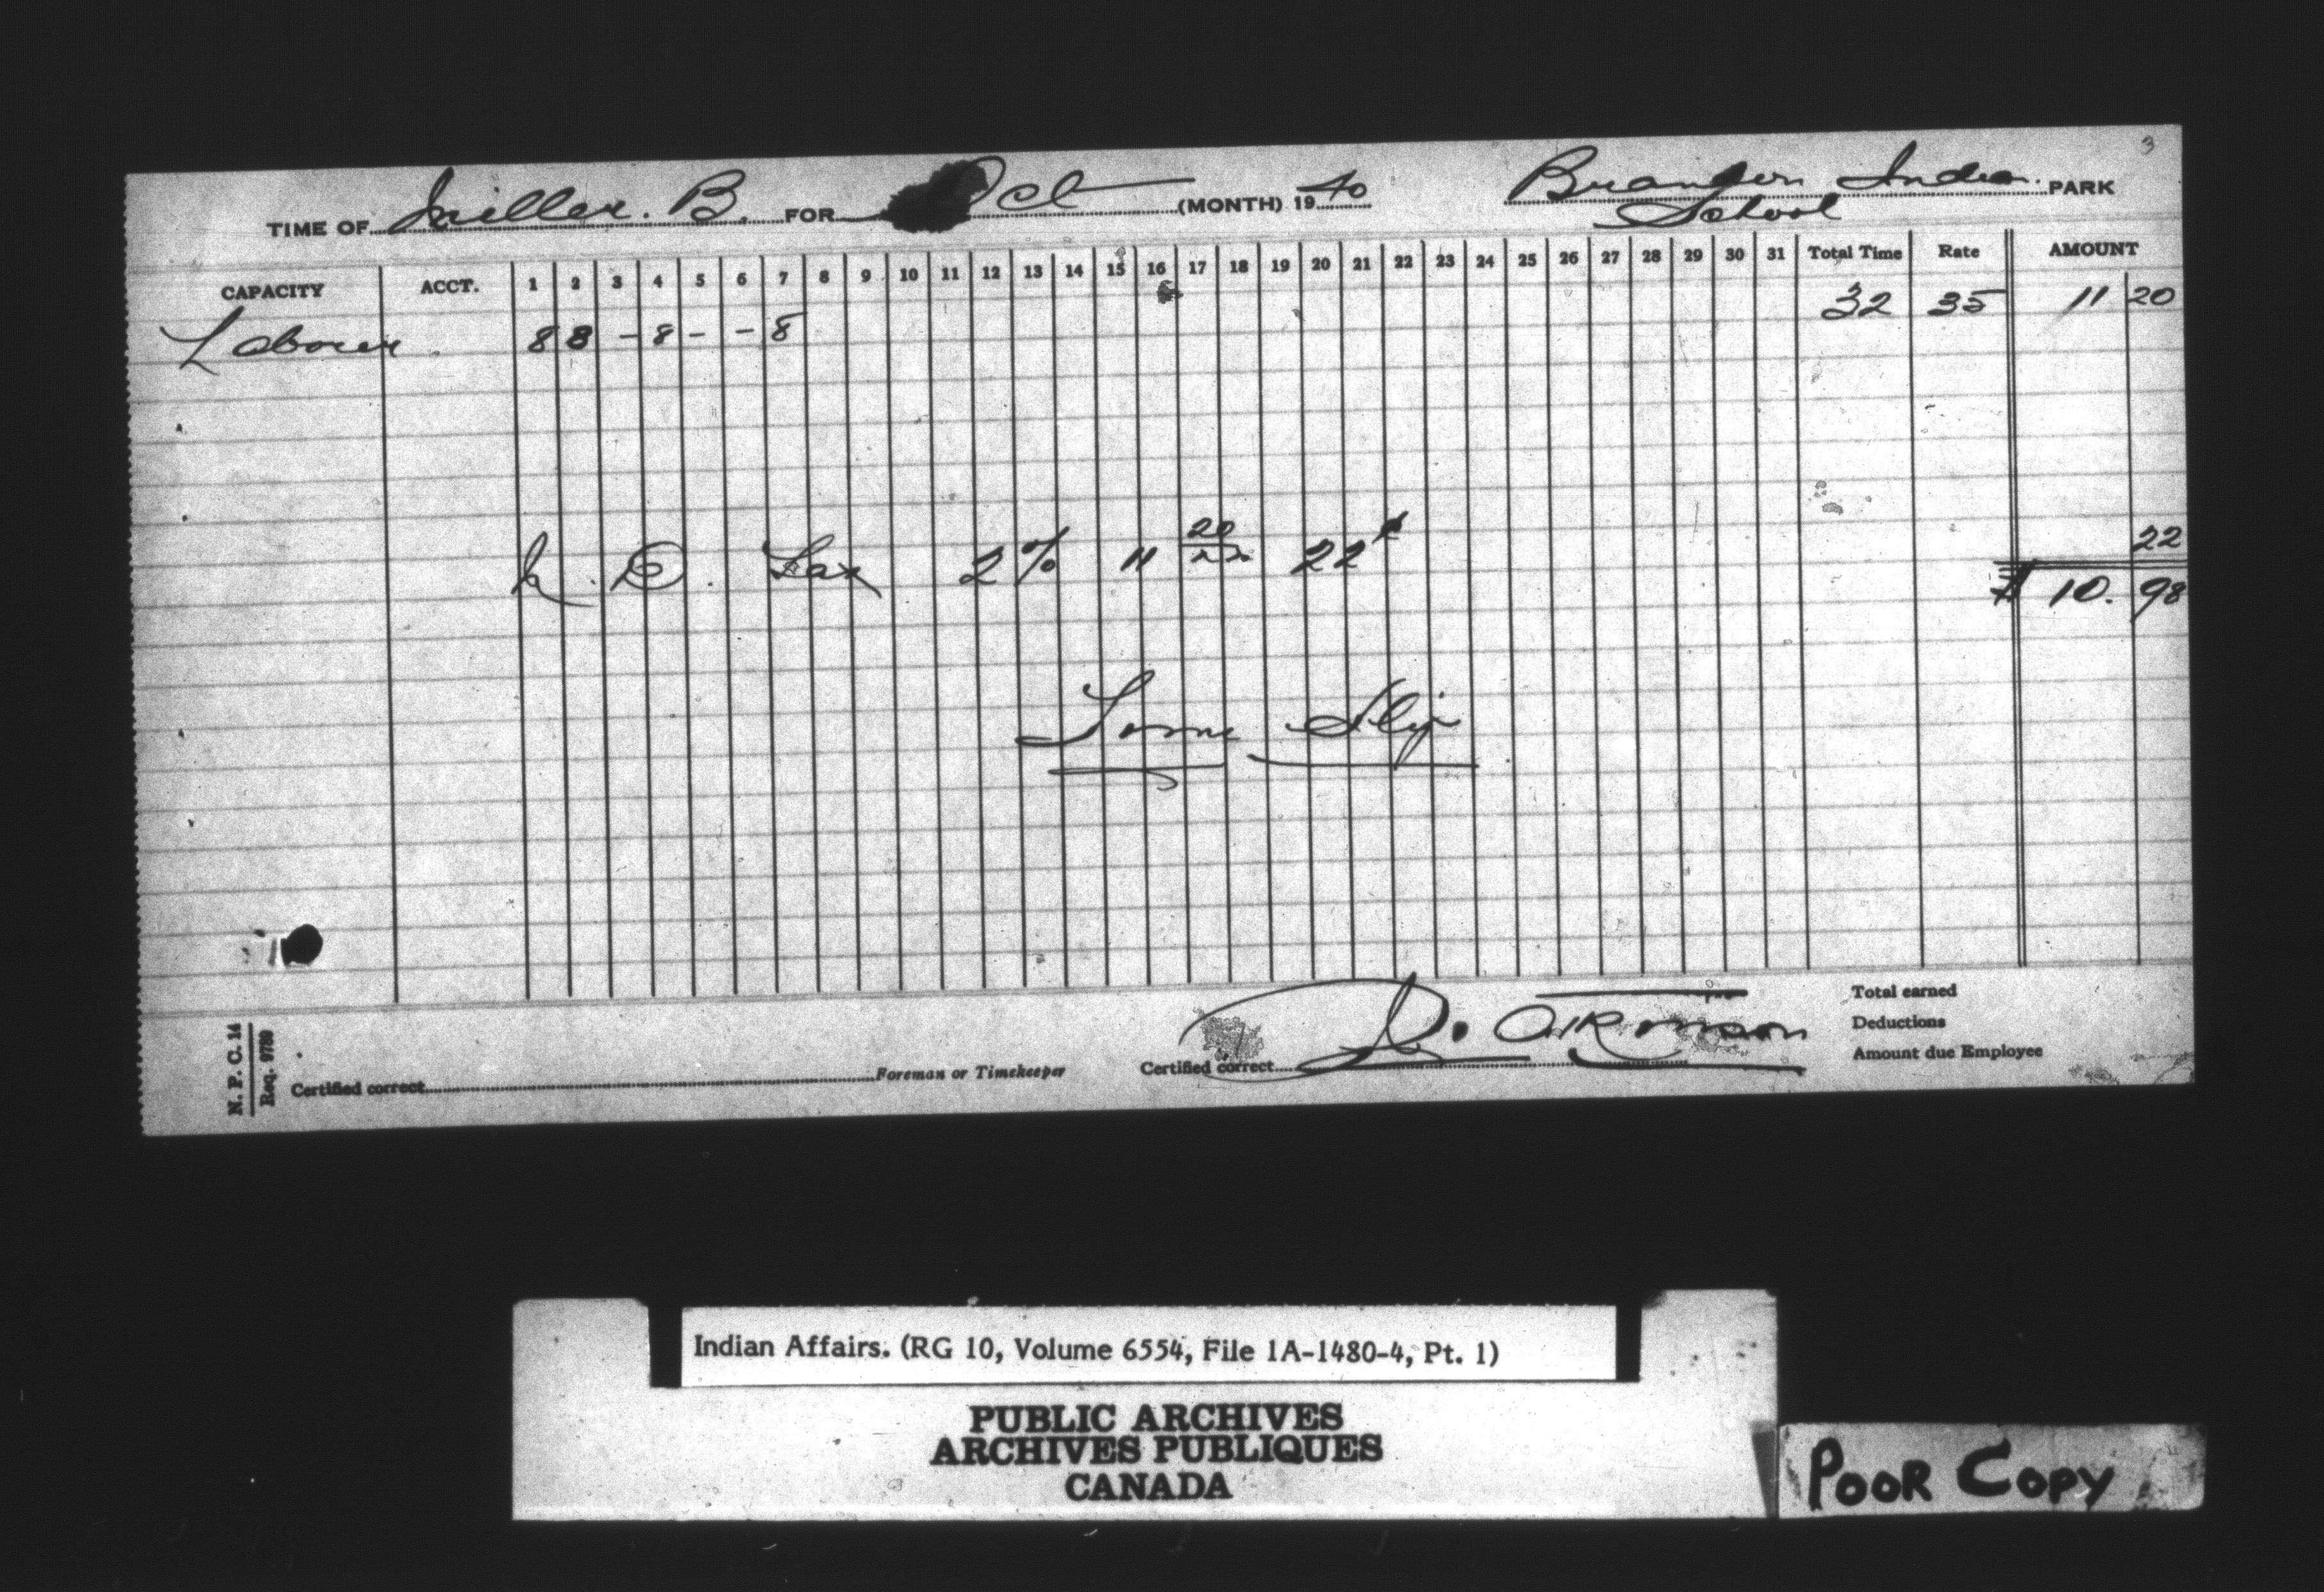 3
TIME OF Miller. B. FOR Oct (MONTH) 1940 Brandon Indian PARK
School
CAPACITY ACCT. 1 2 3 4 5 6 7 8 9 10 11 12 13 14 15 16 17 18 19 20 21 22 23 24 25 26 27 28 29 30 31 Total Time Rate AMOUNT
Laborer 8 8 - 8 - - 8 32 35 11 20
N. D. Tax 2% 11 20 22¢ 22
$ 10. 98
Slip
N. P. C. 14
Req. 9789
Certified correct Foreman or Timekeeper
Certified correct D.
Total earned
Deductions
Amount due Employee
Indian Affairs. (RG 10, Volume 6554, File 1A-1480-4, Pt. 1)
PUBLIC ARCHIVES
ARCHIVES PUBLIQUES
CANADA
POOR COPY